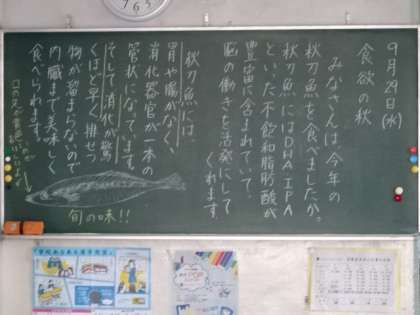 9月29日(水)
食欲の秋
みなさんは、今年の
秋刀魚を食べましたか。
秋刀魚にはDHA、IPA
といった不飽和脂肪酸が
豊富に含まれていて、
脳の働きを活発にして
くれます。
秋刀魚には、
胃や腸がなく、
消化器官が一本の
管状になってます。
そして消化が驚
くほど早く排せつ
物が留まらないので
内臓まで美味しく
食べられます。
旬の味!!